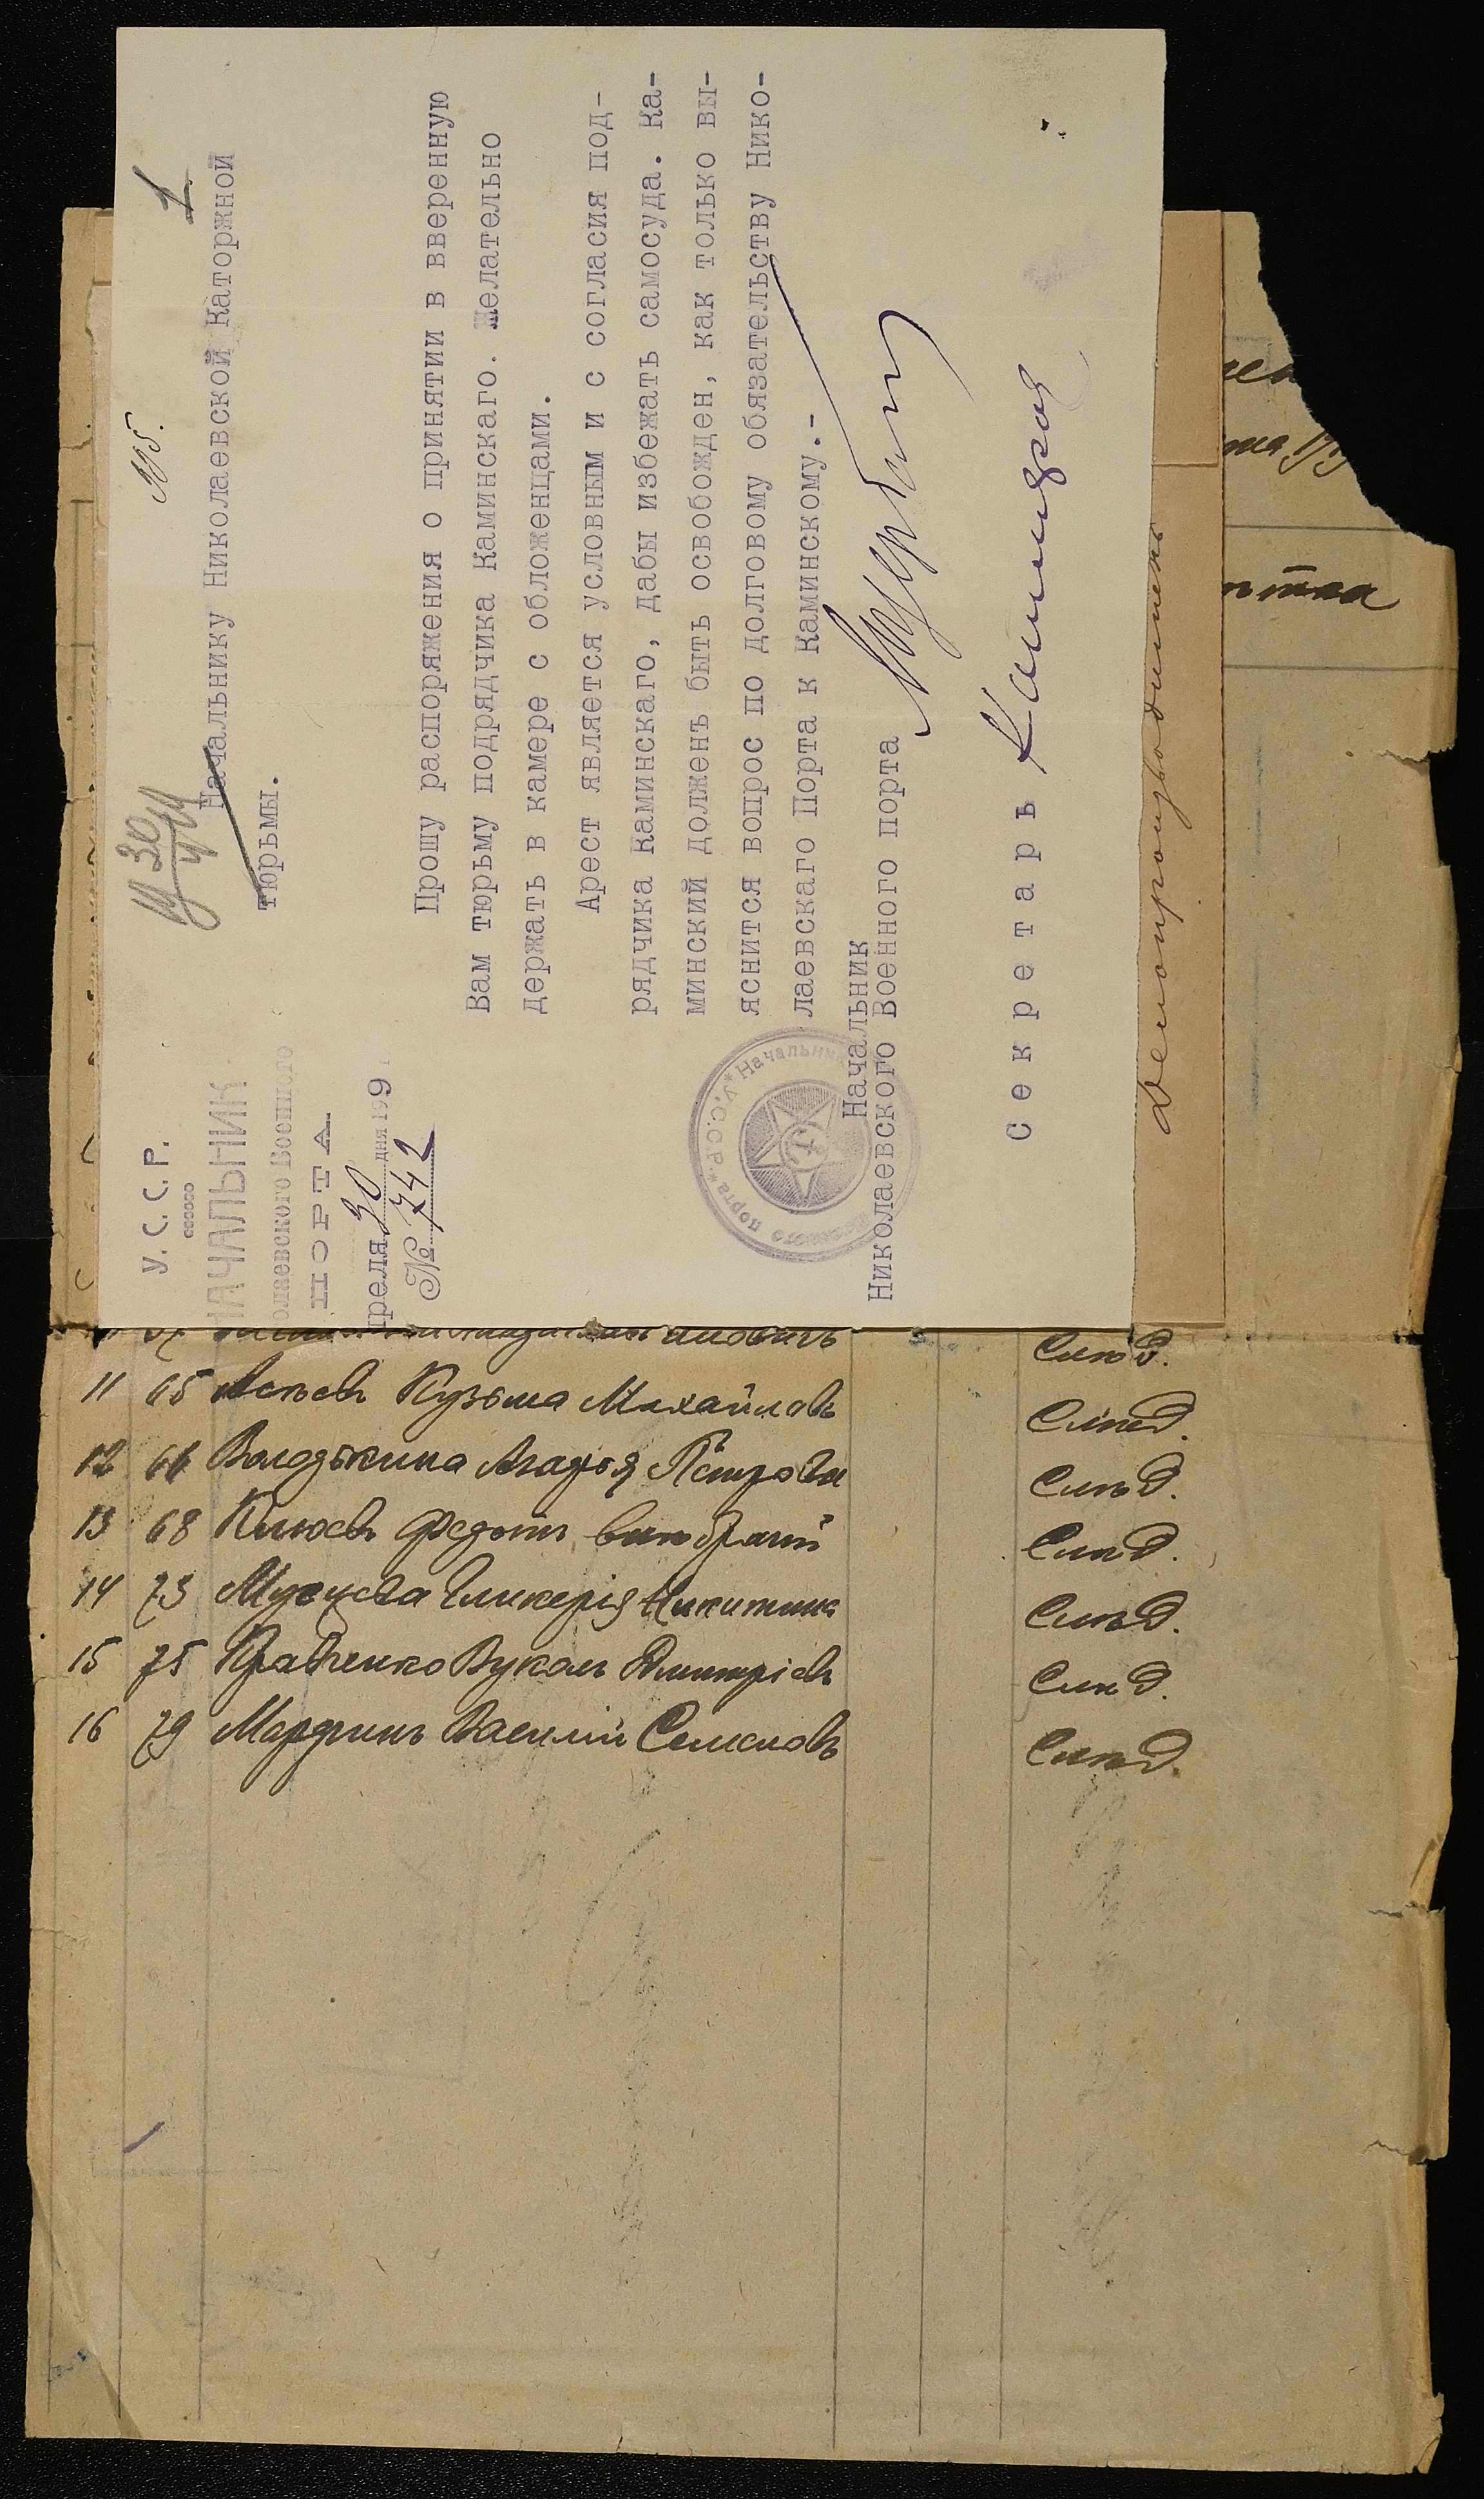 У. С. С. Р.
НАЧАЛЬНИК
олаевского Военного
ПОРТА
преля 30 дня 1919
№ 742
1
Начальнику Николаевской Каторжной
тюрьмы.
Прошу распоряжения о принятии в вверенную
Вам тюрьму подрядчика Каминскаго. Желательно
держать в камере с обложенцами.
Арест является условным и с согласия под-
рядчика Каминскаго, дабы избежать самосуда. Ка-
минский долженъ быть освобожден, как только вы-
яснится вопрос по долговому обязательству Нико-
лаевскаго Порта к Каминскому.-
Начальник
Николаевского Военного порта
Секретарь
Делопроизводитель
слѣд.
11 65 Кузьма Михайловъ слѣд.
12 66 Петрова слѣд.
13 68 слѣд.
14 73 Гликерія Никитина слѣд.
15 75 Кравченко Вуколъ Дмитріевъ слѣд.
16 79 Василій Семеновъ слѣд.